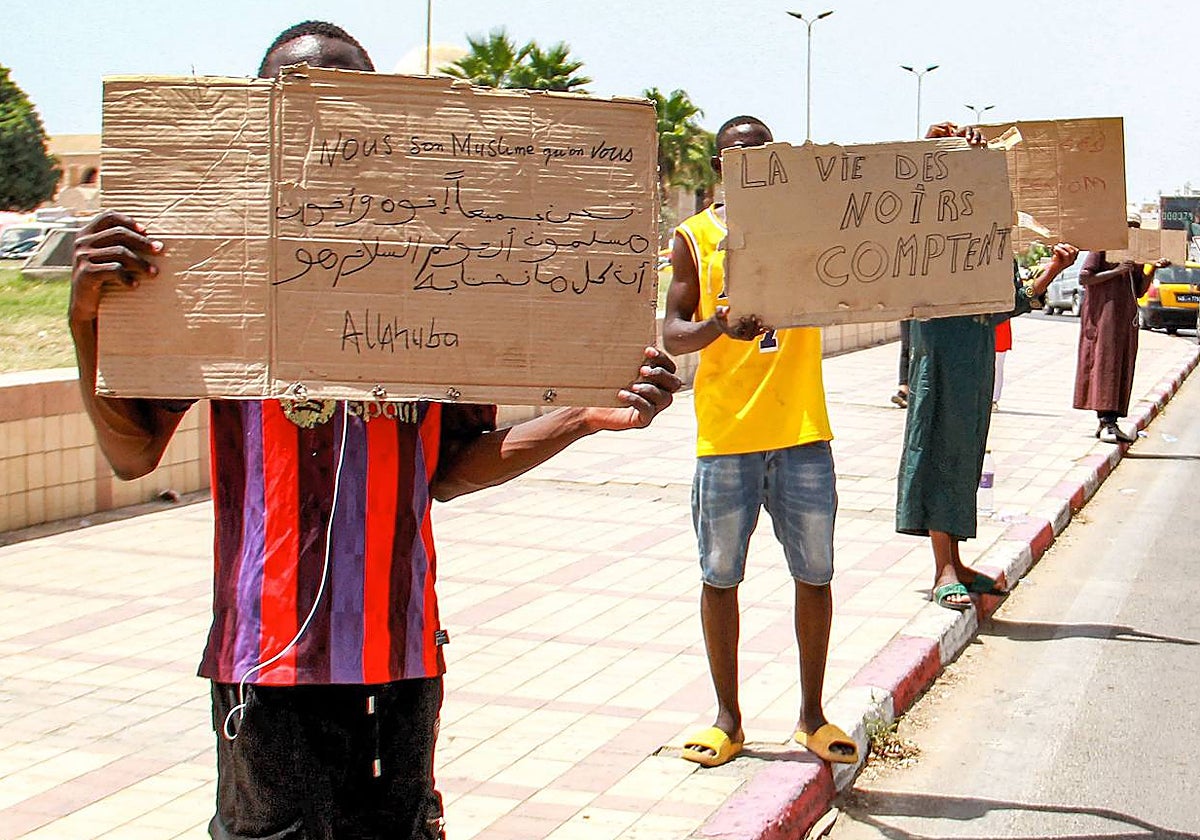 NOUS Son Muslime qu'on Vous
نحن جميعاً إخوه وأخوت
مسلمون أرجوكم السلام هو
أن كل ما نحتاجه
AllAhuba
LA VIE DES
NOIRS
COMPTENT